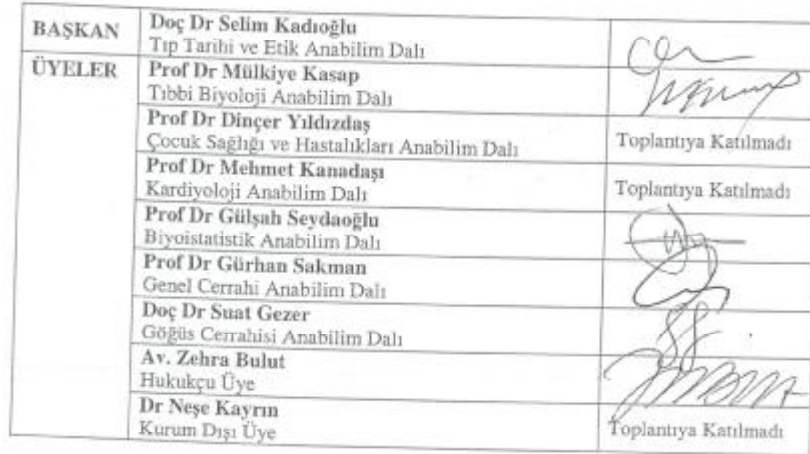 BAŞKAN
Doç Dr Selim Kadıoğlu
Tıp Tarihi ve Etik Anabilim Dalı
ÜYELER
Prof Dr Mülkiye Kasap
Tıbbi Biyoloji Anabilim Dalı
Prof Dr Dinçer Yıldızdaş
Çocuk Sağlığı ve Hastalıkları Anabilim Dalı
Toplantıya Katılmadı
Prof Dr Mehmet Kanadaşı
Kardiyoloji Anabilim Dalı
Toplantıya Katılmadı
Prof Dr Gülşah Seydaoğlu
Biyoistatistik Anabilim Dalı
Prof Dr Gürhan Sakman
Genel Cerrahi Anabilim Dalı
Doç Dr Suat Gezer
Göğüs Cerrahisi Anabilim Dalı
Av. Zehra Bulut
Hukukçu Üye
Dr Neşe Kayrın
Kurum Dışı Üye
Toplantıya Katılmadı